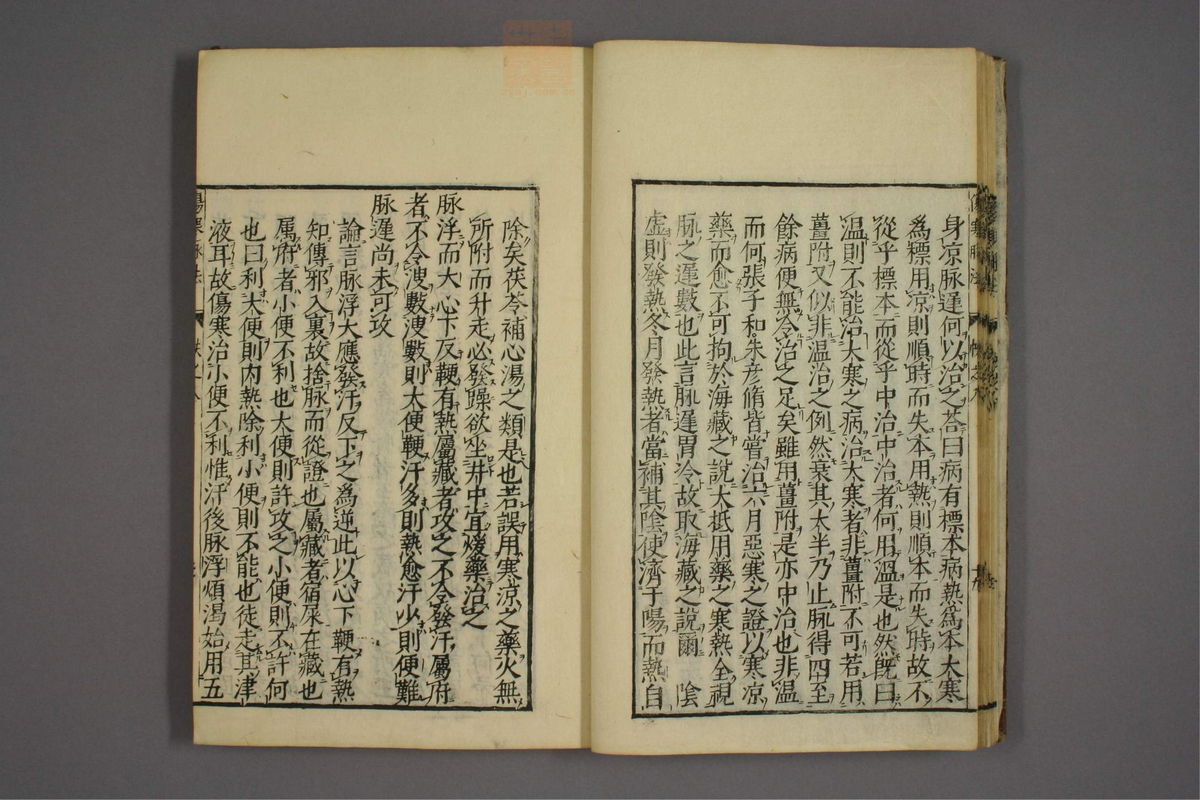 身凉脉遅何以治之荅曰病有標本病熱爲本大寒
爲標用凉則順時而失本用熱則順本而失時故不
從乎標本而從乎中治中治者何用溫是也然旣曰
溫則不能治大寒之病治大寒者非薑附不可若用
薑附又似非温治之例然衰其太半乃止脉得四至
餘病便無令治之足矣雖用薑附是亦中治也非温
而何張子和朱彦脩皆嘗治六月惡寒之證以寒凉
藥而愈不可拘於海藏之說大抵用藥之寒熱全視
脉之遅數也此言脉遅胃冷故取海藏之說爾 陰
虛則發熱冬月發熱者當補其陰使濟于陽而熱自
除矣茯苓補心湯之類是也若誤用寒涼之藥火無
所附而升走必發躁欲坐井中宜煖藥治之
脉浮而大心下反鞕有熱屬藏者攻之不令發汗屬府
者不令溲數溲數則大便鞕汗多則熱愈汗少則便難
脉遅尚未可攻
論言脉浮大應發汗反下之爲逆此以心下鞕有熱
知傳邪入裏故捨脉而從證也屬藏者宿尿在藏也
属府者小便不利也大便則許攻之小便則不許何
也曰利大便則内熱除利小便則不能也徒走其津
液耳故傷寒治小便不利惟汗後脉浮煩渴始用五
傷寒脉法